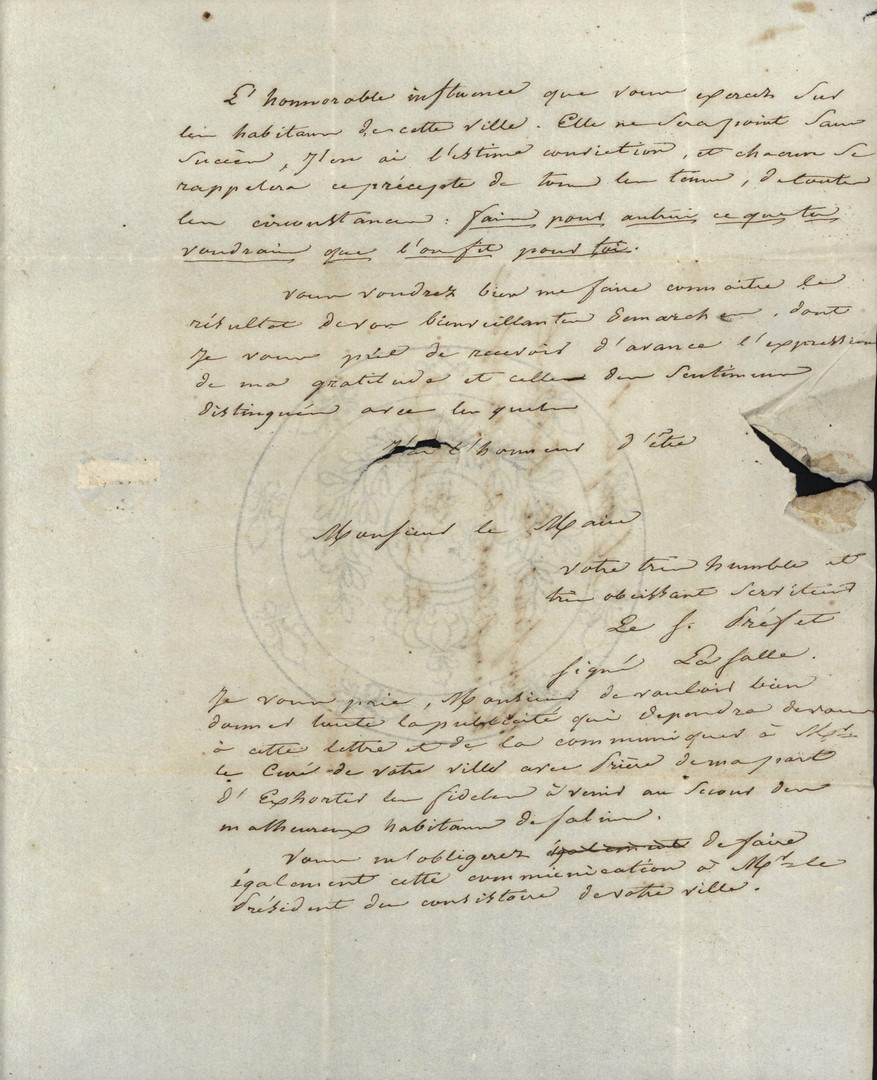 L'honnorable influence que vous exercez sur
les habitans de cette ville. Elle ne sera point sans
succès, J'en ai l'estime conviction, et chacun se
rappelera ce précepte de tous les tems, de toutes
les circonstances: fais pour autrui ce que tu
voudrais que l'on fit pour toi.
vous voudrez bien me faire connaitre le
résultat de vos bienveillantes Demarches, dont
Je vous prie de recevoir d'avance l'expression
de ma gratitude et celle des sentimens
distingués avec lesquels
J'ai l'honneur d'être
Monsieur le Maire
votre très humble et
très obeissant serviteur
Le S. Préfet
signé LaSalle.
Je vous prie, Monsieur de vouloir bien
donner toute la publicité qui dependra de vous
à cette lettre et de la communiquer à Mr
le Curé de votre ville avec Prière de ma part
d'Exhorter les fideles à venir au Secour des
malheureux habitans de Salins.
Vous m'obligerez également de faire
également cette communication à Mr le
Président du consistoire de votre ville.